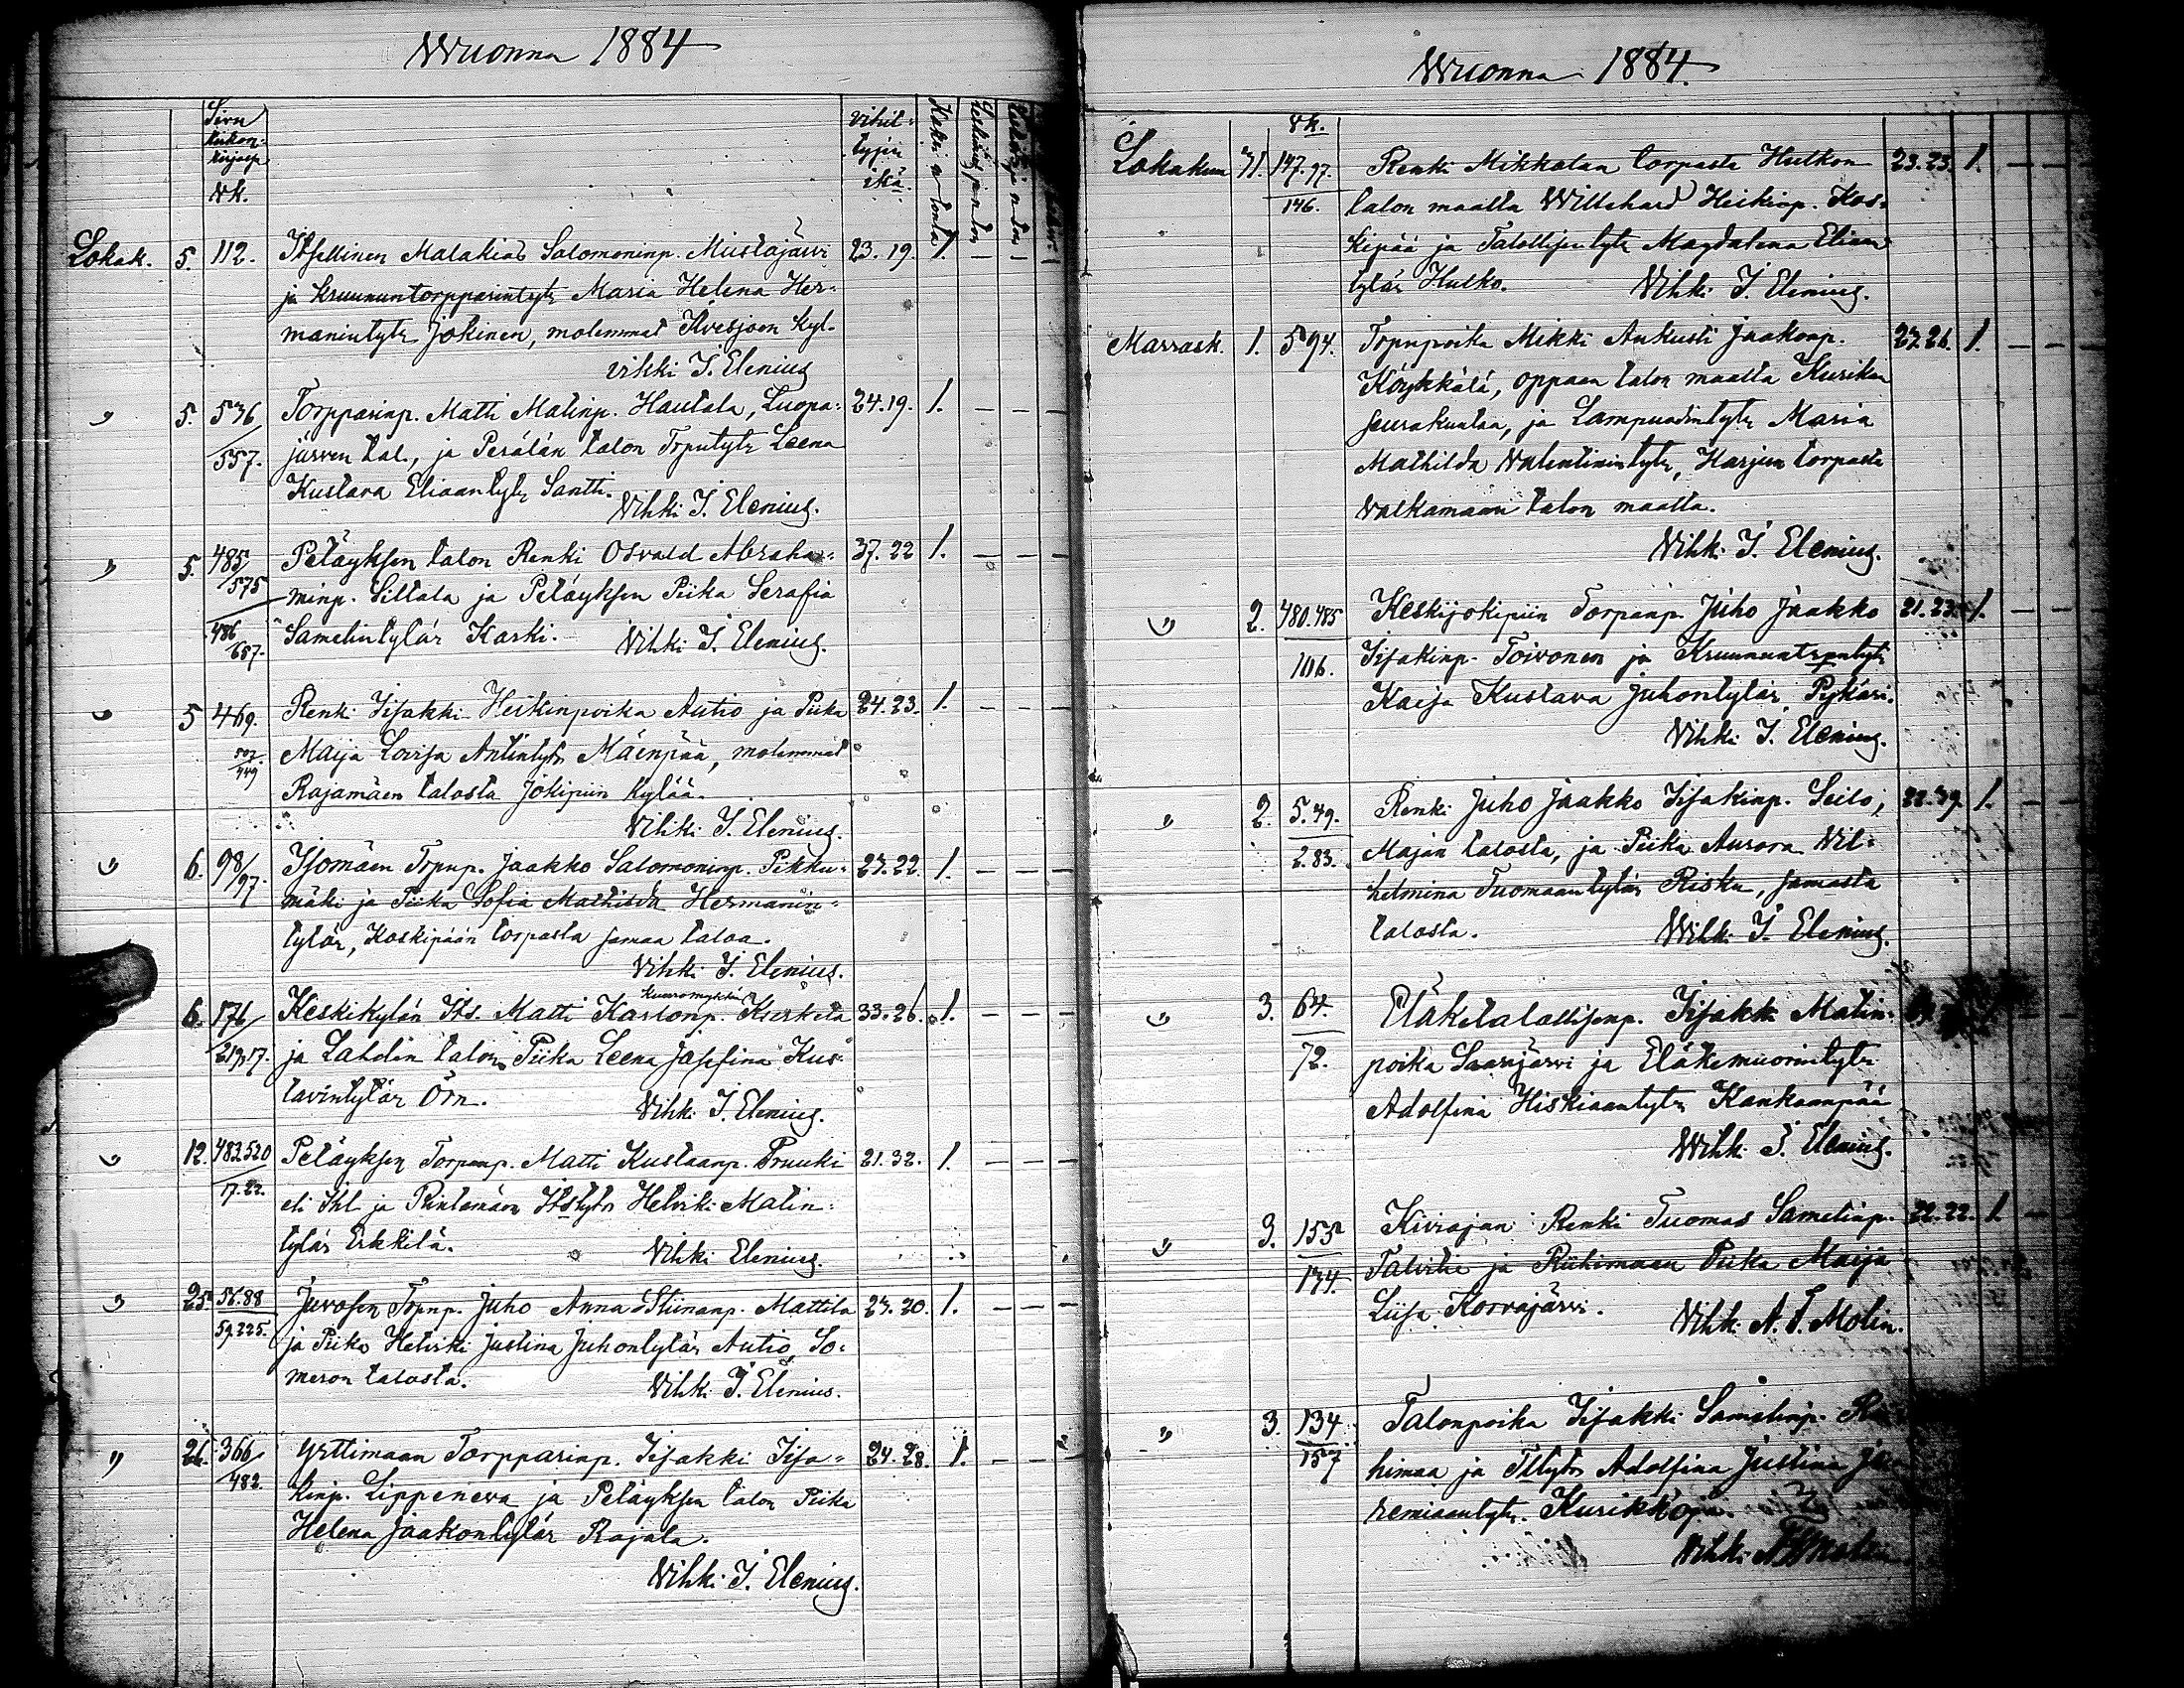 Wuonna 1884
Sivu
kirkon-
kirjasp.
Wk.
vihit-
tyjen
ikä.
Lokak. 5. 112. Itsellinen Malakias Salomoninp. Mustajärvi 23. 19. 1. — —
ja kruununtorpparintytr Maria Helena Her-
manintytr Jokinen, molemmat Ilvesjoen kyl.
vihki I. Elenius
" 5. 536 Torpparinp. Matti Matinp. Hautala, Luopa- 24. 19. 1. — — —
557. järven tal., ja Perälän talon Trpntytr Leena
Kustava Eliaantytr Santti.
Vihki I. Elenius.
" 5. 485/575 Peläyksen talon Renki Osvald Abraha- 37. 22 1. — — —
minp. Sillala ja Peläyksen Piika Serafia
486/657. Samelintytär Karki. Vihki I. Elenius.
" 5 469. Renki Iisakki Heikinpoika Autio ja Piika 24. 23. 1. — — —
449 Maija Lovisa Antintytr Mäenpää, molemmat
Rajamäen talosta Jokipiin kylää.
Vihki I. Elenius.
" 6. 98/97. Isomäen Trpnp. Jaakko Salomoninp. Pikku- 23. 22. 1. — — —
mäki ja Piika Sofia Mathilda Hermanin-
tytär, Koskipään torpasta samaa taloa.
Vihki I. Elenius.
kuuromykkä
6. 176/217,17. Keskikylän Its. Matti Kaslonp. Kurkela 33. 26. 1. — — —
ja Lahdin talon Piika Leena Josefina Kus-
tavintytär Örn. Vihki I. Elenius.
" 12. 483.520 Peläyksen Torpanp. Matti Kustaanp. Pruuki 21. 32. 1. — — —
17. 22. eli Ihl ja Rintamäen Itstytr Helviki Matin-
tytär Erkkilä. Vihki Elenius.
" 25. 56.88 Juvosen Trpnp. Juho Anna Stiinanp. Mattila 23. 20. 1. — — —
59.225. ja Piika Helviki Justina Juhontytär Autio, So-
meron talosta. Vihki I. Elenius.
" 26. 366/482. Yrttimaan Torpparinp. Iisakki Iisa- 24. 28. 1. — — —
kinp. Lippeneva ja Peläyksen talon Piika
Helena Jaakontytär Rajala.
Vihki I. Elenius.
Wuonna 1884.
Wk.
Lokakuu 31. 147. 97. Renki Mikkolan torpasta Hutkon 23. 23. 1. — —
146. talon maalta Willehard Heikinp. Kos-
kipää ja Talollisentytr Magdalena Elian
tytär Hutko. Vihki I. Elenius.
Marrask. 1. 594. Trpnpoika Mikki Aukusti Jaakonp. 27. 26. 1. — — —
Köykkälä, oppaan talon maalta Kurikan
seurakuntaa, ja Lampuodintytr Maria
Mathilda Valentinintytr, Harjun torpasta
Valkamaan talon maalta.
Vihki I. Elenius.
" 2. 480. 485 Keskijokipiin Torpanp. Juho Jaakko 21. 23. 1. — — —
106. Iisakinp. Toivonen ja Kruununtrpntytr
Kaija Kustava Juhontytär Pykäri.
Vihki I. Elenius.
" 2. 5. 49. Renki Juho Jaakko Iisakinp. Seilo, 22. 39. 1. — —
2. 83. Majan talosta, ja Piika Aurora Wil-
helmina Tuomaantytär Risku, samasta
talosta. Wihki I. Elenius.
" 3. 64. Eläketalollisenp. Iisakki Matin-
72. poika Saarijärvi ja Eläkemuorintytr
Adolfina Hiskiaantytr Kankaanpää
Wihki I. Elenius.
" 3. 155 Kivrajan Renki Tuomas Samelinp. 22. 22. 1. —
134. Talvitie ja Riihimaan Piika Maija
Liisa Korvajärvi. Vihki A. T. Molin.
" 3. 134 Talonpoika Iisakki Samelinp.
157 himaa ja Tltytr Adolfina Justina
remiaantytr. Kurikka
Vihki